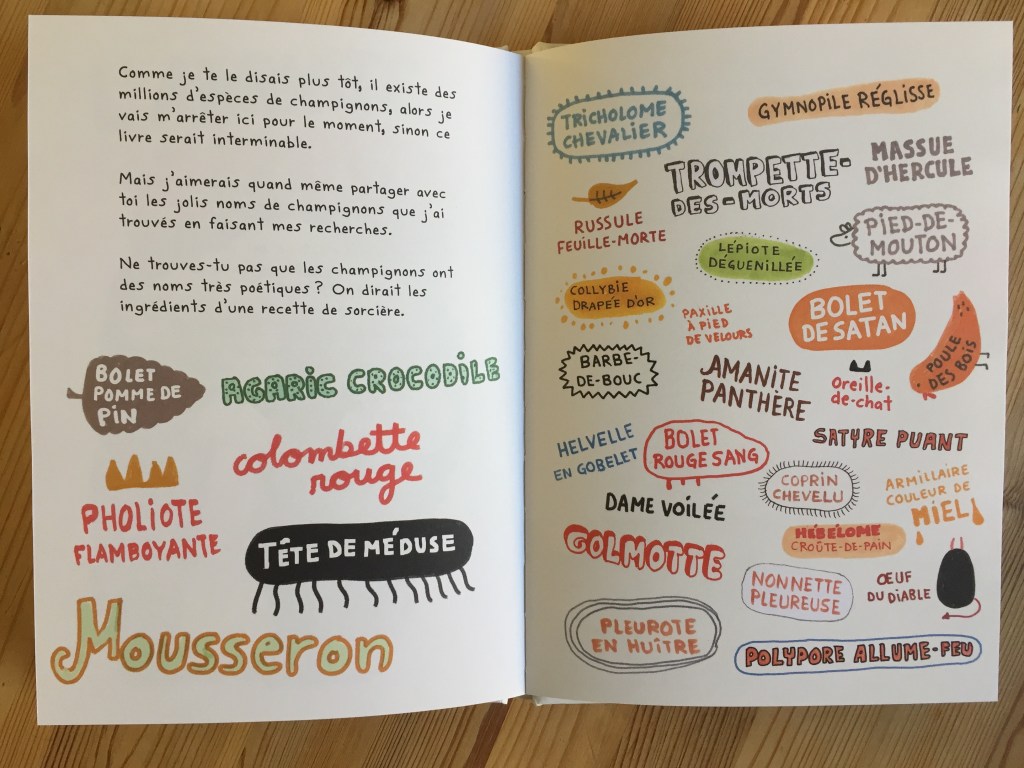 Comme je te le disais plus tôt, il existe des
millions d'espèces de champignons, alors je
vais m'arrêter ici pour le moment, sinon ce
livre serait interminable.
Mais j'aimerais quand même partager avec
toi les jolis noms de champignons que j'ai
trouvés en faisant mes recherches.
Ne trouves-tu pas que les champignons ont
des noms très poétiques ? On dirait les
ingrédients d'une recette de sorcière.
BOLET
POMME DE
PIN
AGARIC CROCODILE
colombette
rouge
PHOLIOTE
FLAMBOYANTE
TÊTE DE MÉDUSE
Mousseron
TRICHOLOME
CHEVALIER
GYMNOPILE RÉGLISSE
TROMPETTE-
DES-MORTS
MASSUE
D'HERCULE
RUSSULE
FEUILLE-MORTE
LÉPIOTE
DÉGUENILLÉE
PIED-DE-
MOUTON
COLLYBIE
DRAPÉE D'OR
PAXILLE
À PIED
DE VELOURS
BOLET
DE SATAN
POULE
DES BOIS
BARBE-
DE-BOUC
AMANITE
PANTHÈRE
oreille-
de-chat
HELVELLE
EN GOBELET
BOLET
ROUGE SANG
SATYRE PUANT
COPRIN
CHEVELU
ARMILLAIRE
COULEUR DE
MIEL
DAME VOILÉE
GOLMOTTE
HÉBÉLOME
CROÛTE-DE-PAIN
NONNETTE
PLEUREUSE
ŒUF
DU DIABLE
PLEUROTE
EN HUÎTRE
POLYPORE ALLUME-FEU